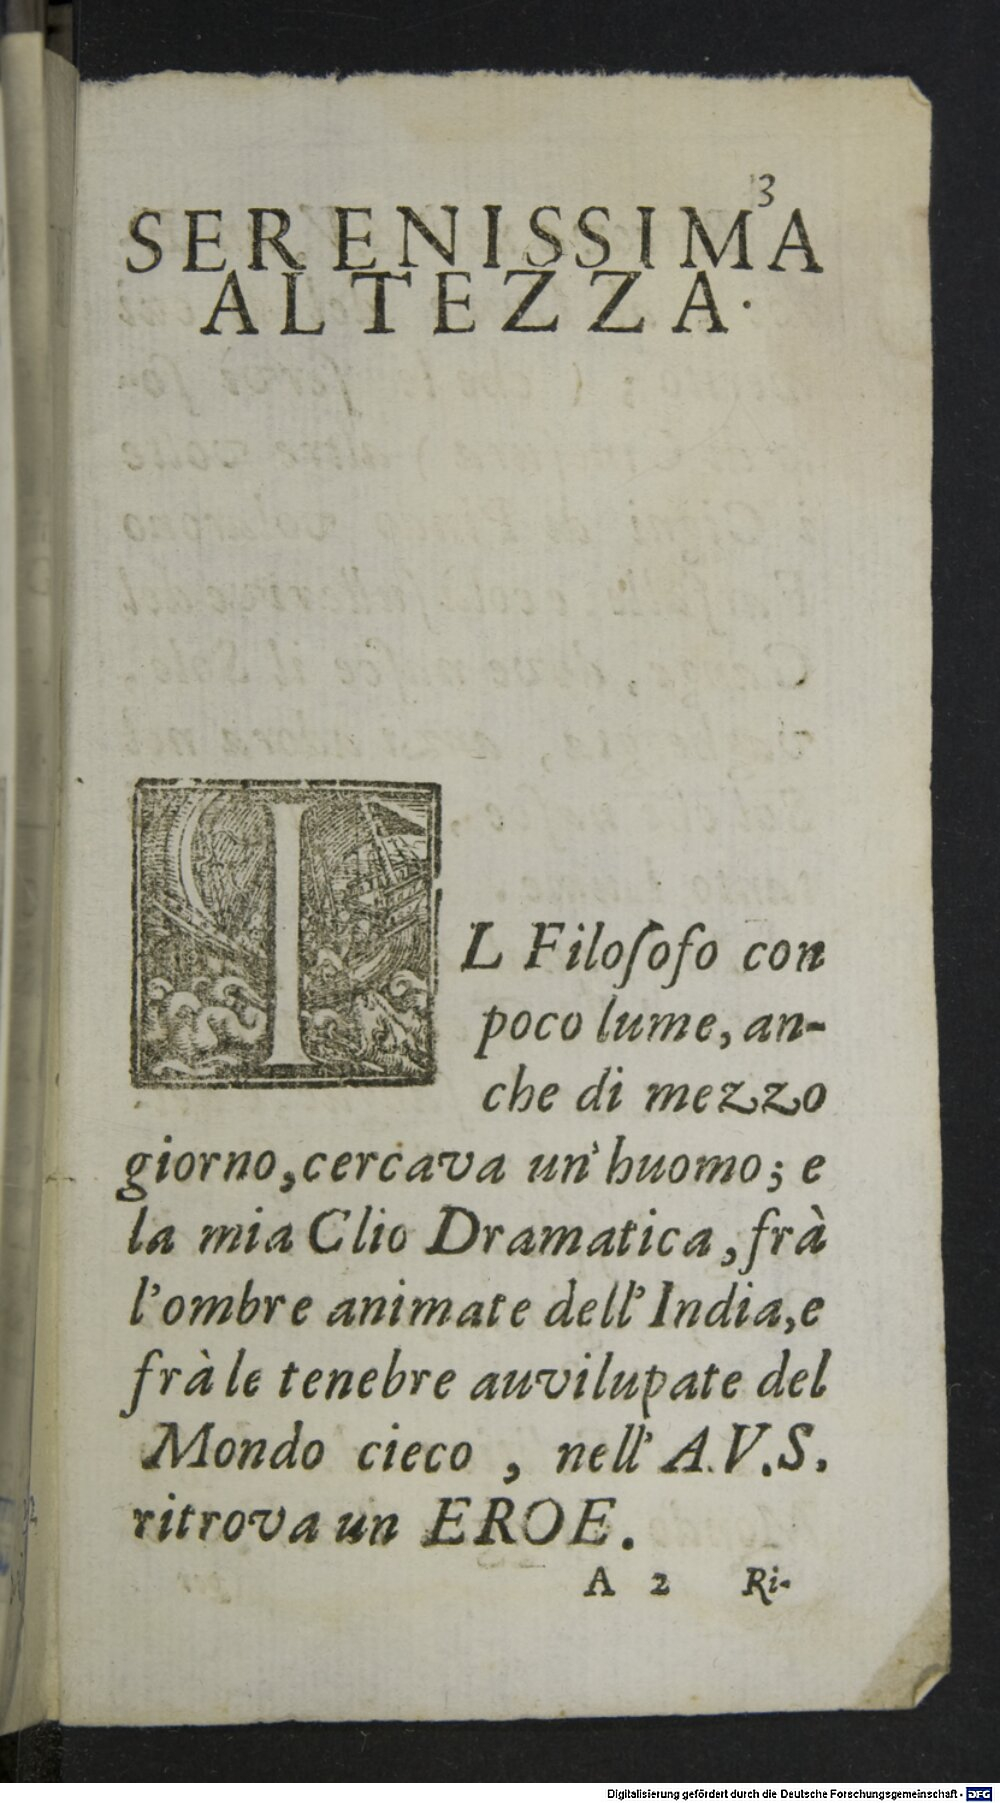 3
SERENISSIMA
ALTEZZA.
IL Filoſofo con
poco lume, an-
che di mezzo
giorno, cercava un'huomo; e
la mia Clio Dramatica, frà
l'ombre animate dell'India, e
frà le tenebre auvilupate del
Mondo cieco, nell'A.V.S.
ritrova un EROE.
A 2 Ri-
Digitalisierung gefördert durch die Deutsche Forschungsgemeinschaft - DFG